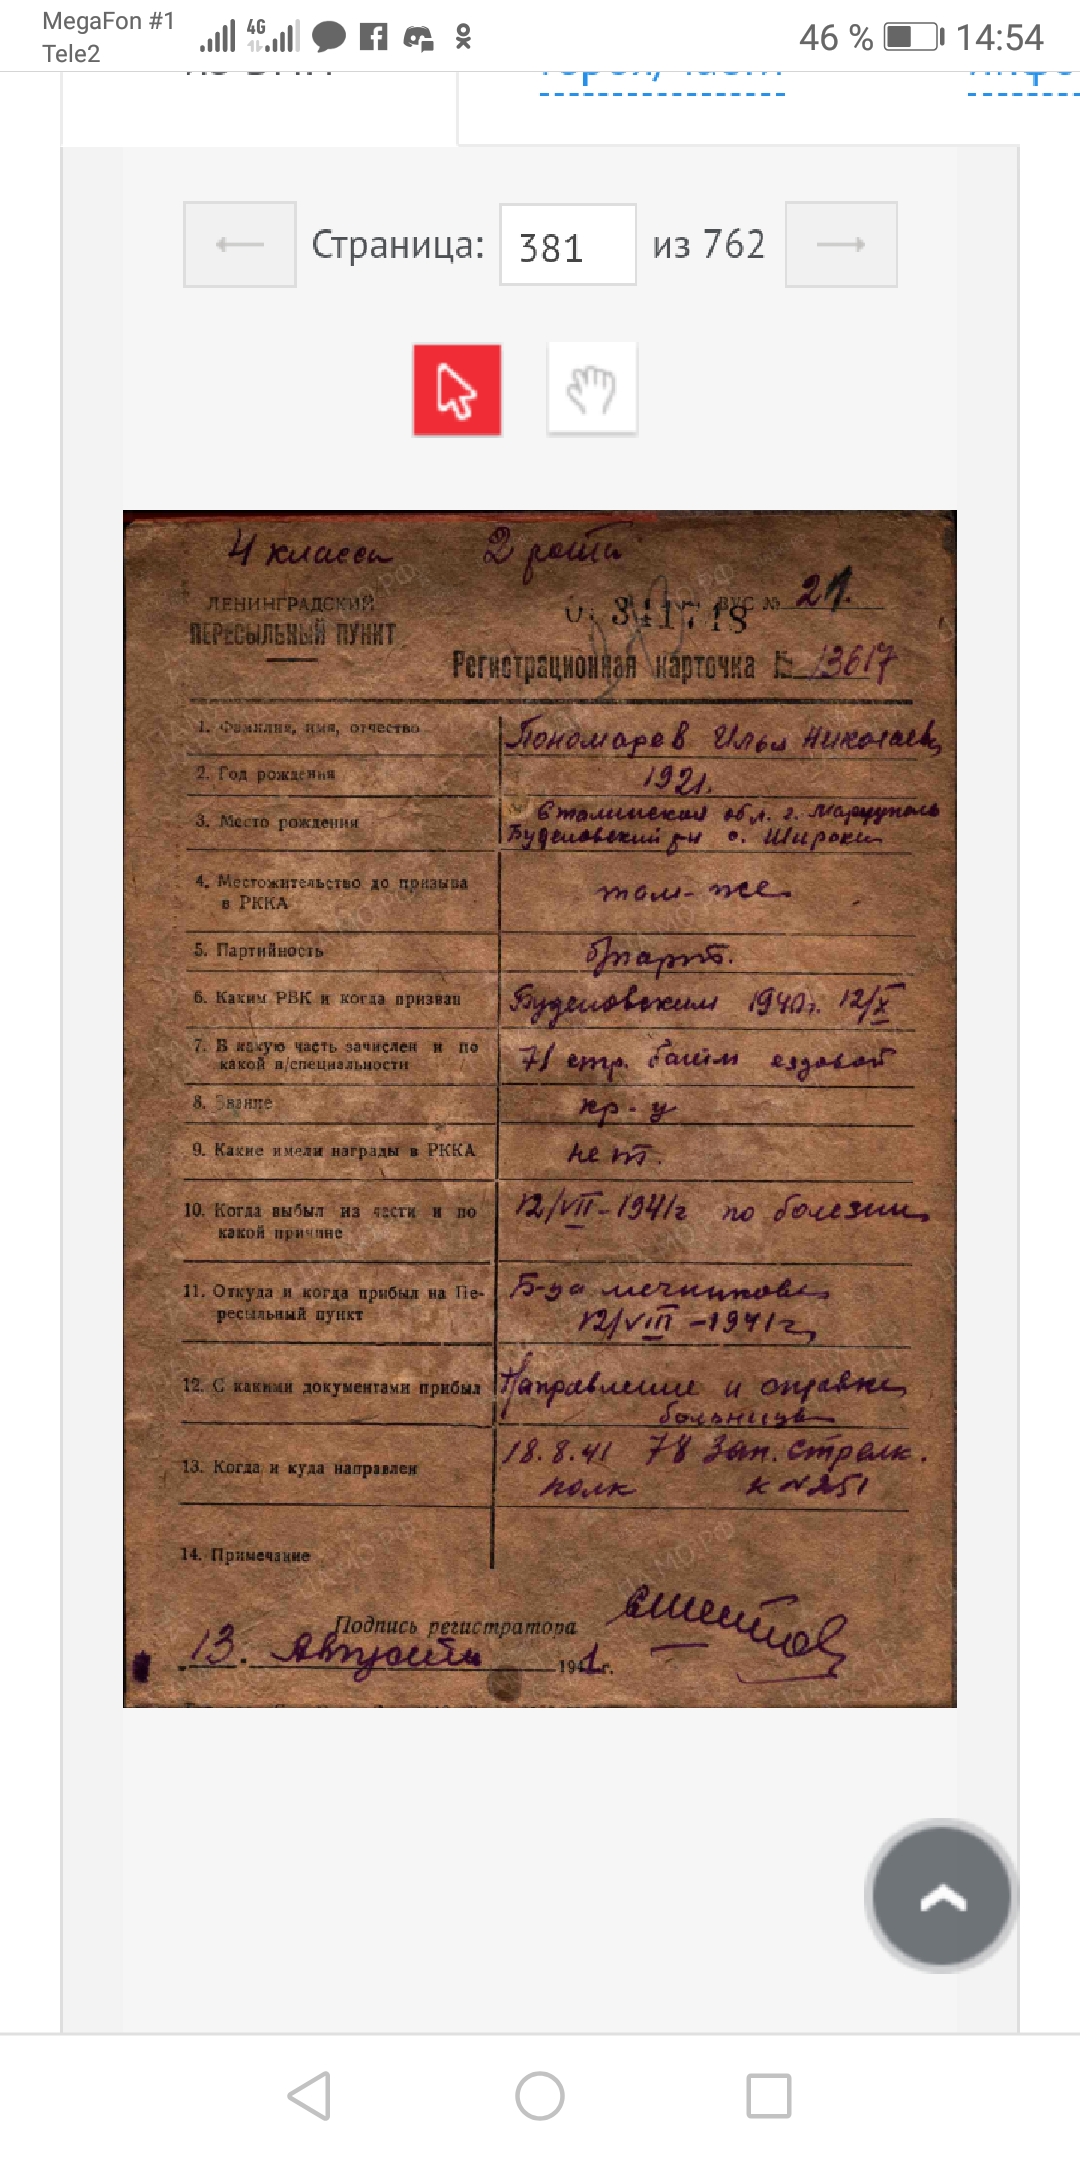 MegaFon #1
Tele2
4G
46 % 14:54
Страница: 381 из 762
4 класса 2 рота
ЛЕНИНГРАДСКИЙ
ПЕРЕСЫЛЬНЫЙ ПУНКТ
ВУС № 21.
341718
Регистрационная карточка № 13617
1. Фамилия, имя, отчество Пономарев Илья Николаев
2. Год рождения 1921.
3. Место рождения Сталинская обл. г. Мариуполь
Буденовский рн с. Широки
4. Местожительство до призыва
в РККА там-же
5. Партийность б/парт.
6. Каким РВК и когда призван Буденовским 1940г. 12/X
7. В какую часть зачислен и по
какой в/специальности 71 стр. бат ездовой
8. Звание кр-ц
9. Какие имели награды в РККА нет.
10. Когда выбыл из части и по
какой причине 12/VII-1941г по болезни
11. Откуда и когда прибыл на Пе-
ресыльный пункт Б-ца мечникова
12/VIII-1941г
12. С какими документами прибыл Направление и справка
больницы
13. Когда и куда направлен 18.8.41 78 Зап. стрелк.
полк к №251
14. Примечание
Подпись регистратора
13. Августа 1941г.